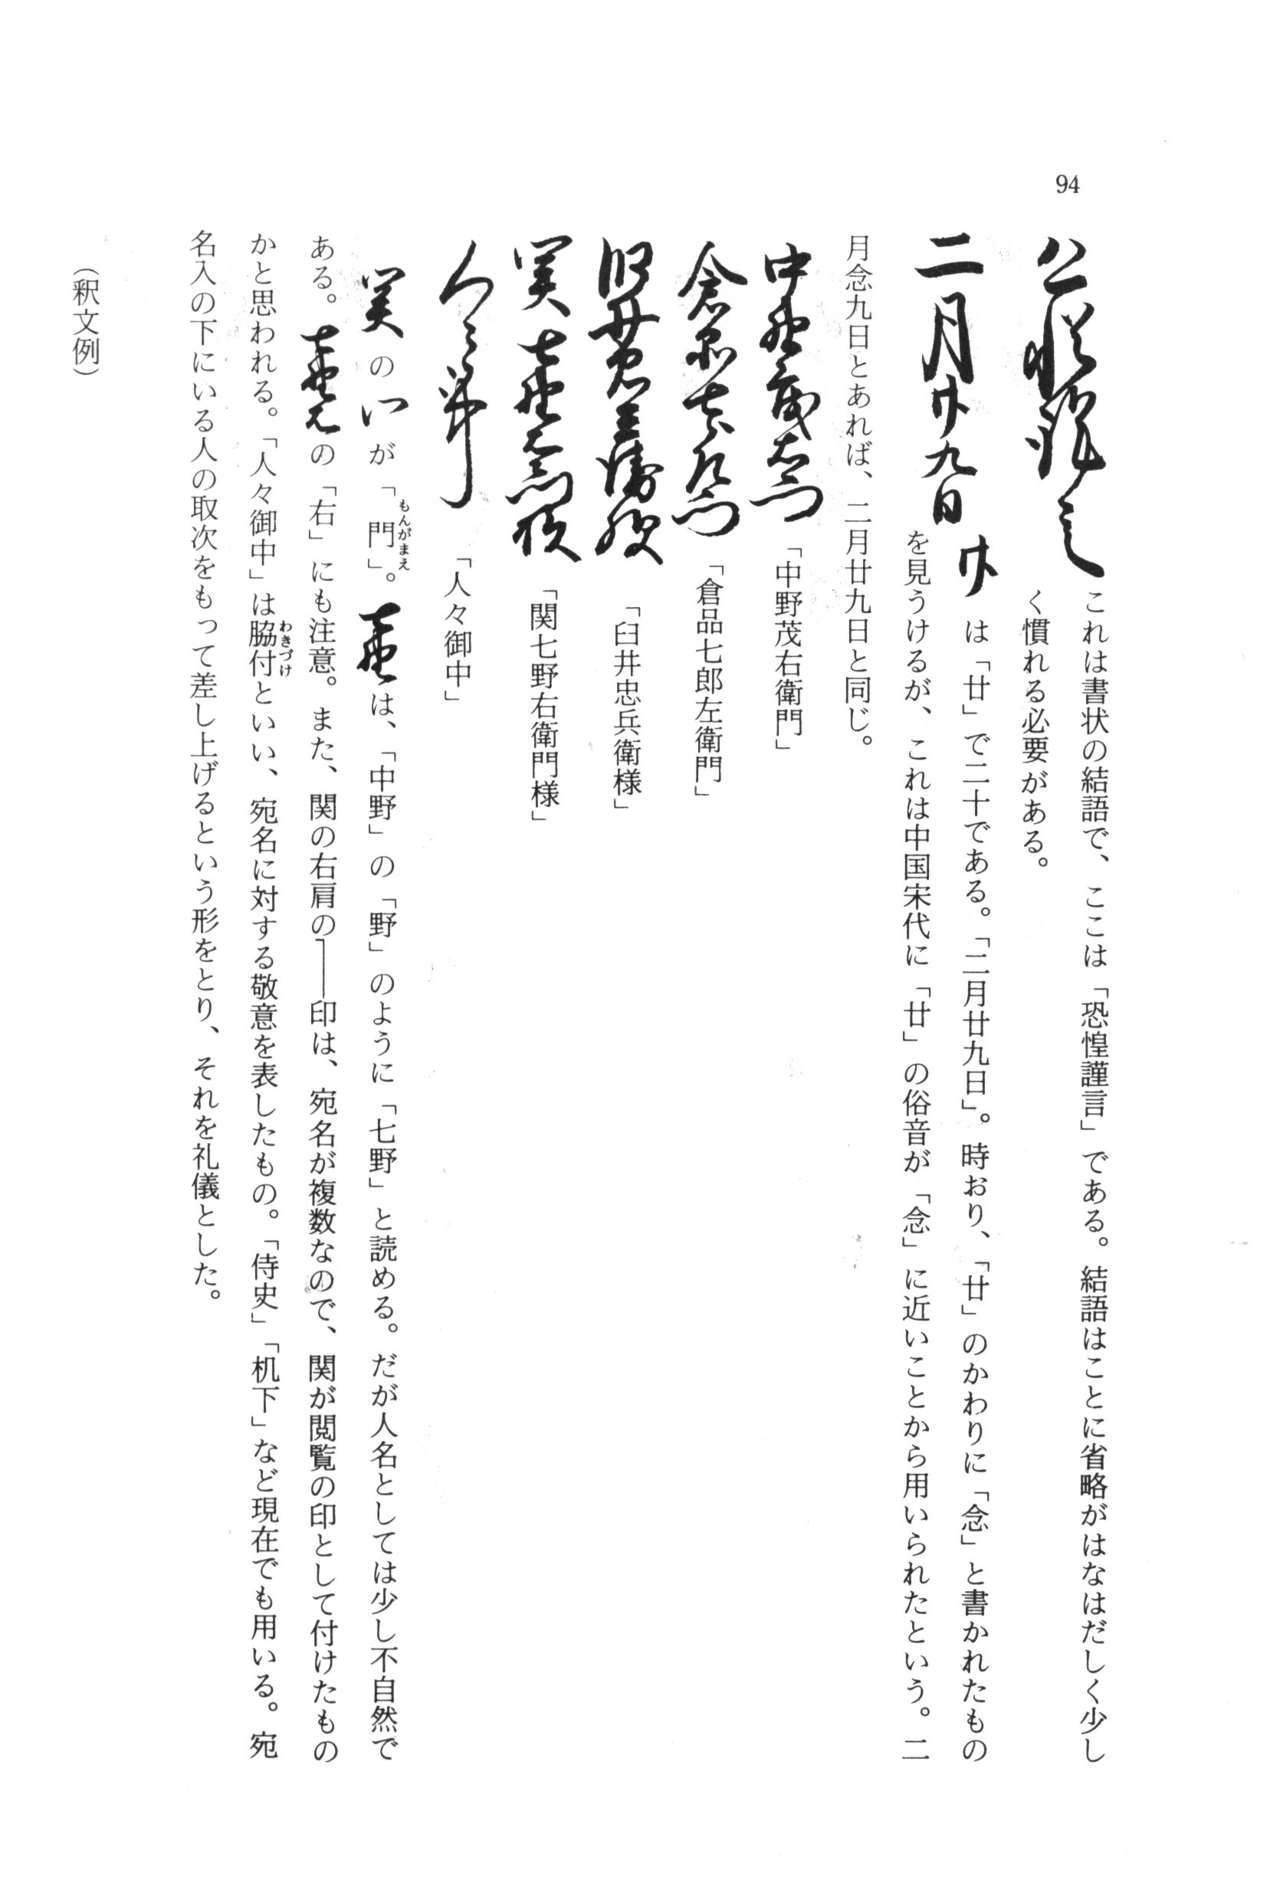 94
恐惶謹言
これは書状の結語で、ここは「恐惶謹言」である。結語はことに省略がはなはだしく少し
く慣れる必要がある。
二月廿九日
廿
は「廿」で二十である。「二月廿九日」。時おり、「廿」のかわりに「念」と書かれたもの
を見うけるが、これは中国宋代に「廿」の俗音が「念」に近いことから用いられたという。二
月念九日とあれば、二月廿九日と同じ。
中野茂右衛門「中野茂右衛門」
倉品七郎左衛門「倉品七郎左衛門」
臼井忠兵衛様「臼井忠兵衛様」
関七野右衛門様「関七野右衛門様」
人々御中「人々御中」
関のが「門」。七野は、「中野」の「野」のように「七野」と読める。だが人名としては少し不自然で
もんがまえ
ある。七野右の「右」にも注意。また、関の右肩の――印は、宛名が複数なので、関が閲覧の印として付けたもの
かと思われる。「人々御中」は脇付といい、宛名に対する敬意を表したもの。「侍史」「机下」など現在でも用いる。宛
わきづけ
名入の下にいる人の取次をもって差し上げるという形をとり、それを礼儀とした。
（釈文例）